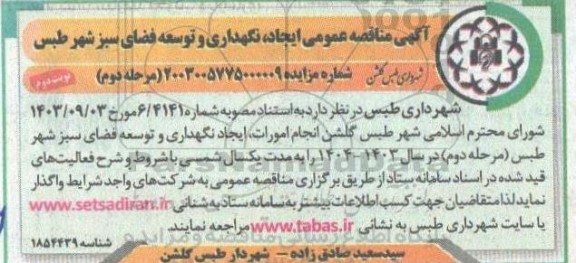 آگهی مناقصه عمومی ایجاد، نگهداری و توسعه فضای سبز شهر طبس
شهرداری طبس گلشن
شماره مزایده ۲۰۰۳۰۰۵۷۷۵۰۰۰۰۰۹ (مرحله دوم)
نوبت دوم
شهرداری طبس در نظر دارد به استناد مصوبه شماره ۶/۴۱۴۱ مورخ ۱۴۰۳/۰۹/۰۳
شورای محترم اسلامی شهر طبس گلشن انجام امورات، ایجاد نگهداری و توسعه فضای سبز شهر
طبس (مرحله دوم) در سال ۱۴۰۳-۱۴۰۴ را به مدت یکسال شمسی با شروط و شرح فعالیت‌های
قید شده در اسناد سامانه ستاد از طریق برگزاری مناقصه عمومی به شرکت‌های واجد شرایط واگذار
نماید لذا متقاضیان جهت کسب اطلاعات بیشتر به سامانه ستاد به نشانی www.setsadiran.ir
یا سایت شهرداری طبس به نشانی www.tabas.ir مراجعه نمایند.
شناسه ۱۸۵۴۴۳۹
سیدسعید صادق زاده – شهردار طبس گلشن